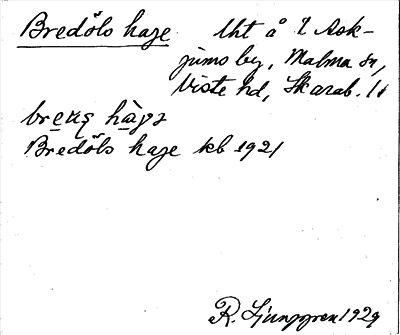 Bredöls hage Uht å l Ask-
jums by, Malma sn,
Viste hd, Skarab. l.
hàgə
Bredöls hage kb 1921
R. Ljunggren 1929